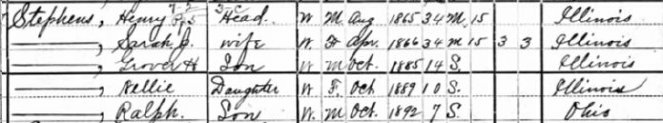 Stephens, Henry Head W M Aug 1865 34 M 15 Illinois
———, Sarah J. wife W. F Apr. 1866 34 M 15 3 3 Illinois
———, Grover H Son W. M Oct. 1885 14 S. Illinois
———, Nellie Daughter W. F. Oct 1889 10 S. Illinois
———, Ralph. Son W. M Oct. 1892 7 S. Ohio